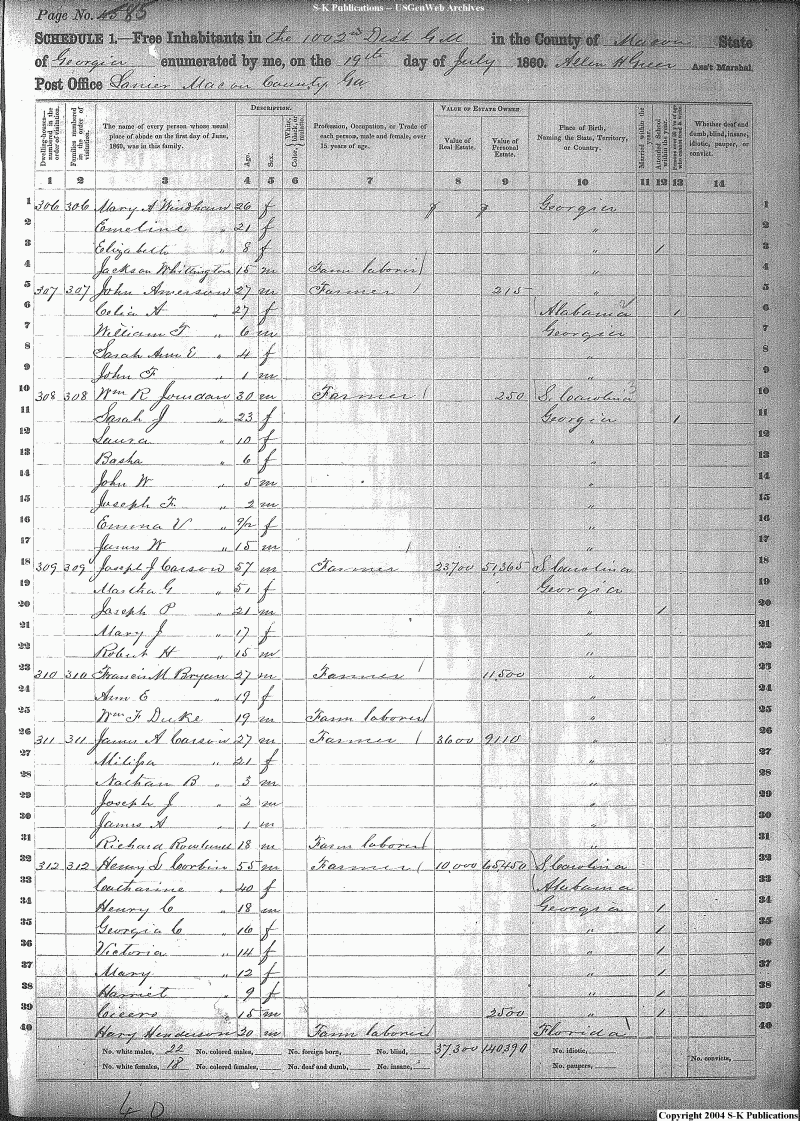 S-K Publications – USGenWeb Archives
Page No. 85
SCHEDULE 1.—Free Inhabitants in the 1002nd Dist G M in the County of Macon State
of Georgia enumerated by me, on the 19th day of July 1860. Allen H Greer Ass't Marshal.
Post Office Lanier Macon County Ga
Dwelling-houses—numbered in the order of visitation.
Families numbered in the order of visitation.
The name of every person whose usual place of abode on the first day of June, 1860, was in this family.
DESCRIPTION.
Age.
Sex.
Color, White, black, or mulatto.
Profession, Occupation, or Trade of each person, male and female, over 15 years of age.
VALUE OF ESTATE OWNED.
Value of Real Estate.
Value of Personal Estate.
Place of Birth, Naming the State, Territory, or Country.
Married within the year.
Attended School within the year.
Whether deaf and dumb, blind, insane, idiotic, pauper, or convict.
1 2 3 4 5 6 7 8 9 10 11 12 13 14
1 306 306 Mary A Windham 26 f Georgia 1
2 Emeline " 21 f " 2
3 Elizabeth " 8 f " / 3
4 Jackson Whittington 15 m Farm laborer " 4
5 307 307 John Amerson 27 m Farmer 215 " 5
6 Celia A " 27 f Alabama / 6
7 William T " 6 m Georgia 7
8 Sarah Ann E " 4 f " 8
9 John F " 1 m " 9
10 308 308 Wm R Jourdan 30 m Farmer 250 S. Carolina 10
11 Sarah J " 23 f Georgia / 11
12 Laura " 10 f " 12
13 Basha " 6 f " 13
14 John W " 5 m " 14
15 Joseph F. " 2 m " 15
16 Emma V " 9/12 f " 16
17 James W " 15 m " 17
18 309 309 Joseph J Carson 57 m Farmer 23700 51,365 S. Carolina 18
19 Martha G " 51 f Georgia 19
20 Joseph P " 21 m " / 20
21 Mary J " 17 f " 21
22 Robert H " 15 m " 22
23 310 310 Francis M Bryan 27 m Farmer 11,500 " 23
24 Ann E " 19 f " 24
25 Wm F Duke 19 m Farm laborer " 25
26 311 311 James A Carson 27 m Farmer 3600 9110 " 26
27 Milissa " 21 f " 27
28 Nathan B " 3 m " 28
29 Joseph J " 2 m " 29
30 James A " 1 m " 30
31 Richard 18 m Farm laborer " 31
32 312 312 Henry L Corbin 55 m Farmer 10,000 65,450 S. Carolina 32
33 Catharine " 40 f Alabama 33
34 Henry C " 18 m Georgia / 34
35 Georgia C " 16 f " / 35
36 Victoria " 14 f " / 36
37 Mary " 12 f " / 37
38 Harriet " 9 f " / 38
39 Cicero " 15 m 2500 " / 39
40 Hary Henderson 30 m Farm laborer Florida 40
No. white males, 22 No. colored males, No. foreign born, No. blind, 37300 140390 No. idiotic,
No. white females, 18 No. colored females, No. deaf and dumb, No. insane, No. paupers, No. convicts,
40
Copyright 2004 S-K Publications